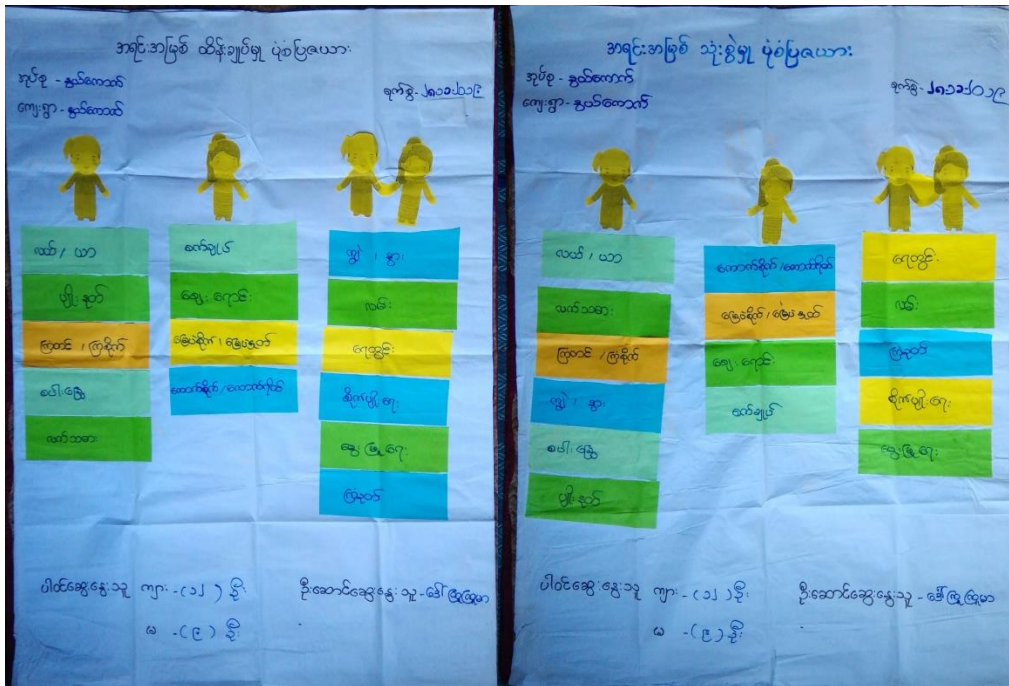 အရင်းအမြစ် ထိန်းချုပ်မှု ပုံစံပြဇယား
အုပ်စု - နွယ်ကောက်
ကျေးရွာ - နွယ်ကောက်
ရက်စွဲ - ၂၈.၁၁.၂၀၁၉
လယ် / ယာ
မျိုးနုတ်
ကြံတင် / ကြံစိုက်
စပါးခြွေ
လက်သမား
စက်ချုပ်
ဈေးရောင်း
မြေပဲစိုက် / မြေပဲနှုတ်
ကောက်စိုက် / ကောက်ရိတ်
ကျွဲ / နွား
လမ်း
ရေတွင်း
စိုက်ပျိုးရေး
မွေးမြူရေး
ကြံခုတ်
ပါဝင်ဆွေးနွေးသူ ကျား - (၁၂) ဦး
မ - (၉) ဦး
ဦးဆောင်ဆွေးနွေးသူ - ဒေါ်ဖြူဖြူမာ
အရင်းအမြစ် သုံးစွဲမှု ပုံစံပြဇယား
အုပ်စု - နွယ်ကောက်
ကျေးရွာ - နွယ်ကောက်
ရက်စွဲ - ၂၈.၁၁.၂၀၁၉
လယ် / ယာ
လက်သမား
ကြံတင် / ကြံစိုက်
ကျွဲ / နွား
စပါးခြွေ
မျိုးနုတ်
ကောက်စိုက် / ကောက်ရိတ်
မြေပဲစိုက် / မြေပဲနှုတ်
ဈေးရောင်း
စက်ချုပ်
ရေတွင်း
လမ်း
ကြံခုတ်
စိုက်ပျိုးရေး
မွေးမြူရေး
ပါဝင်ဆွေးနွေးသူ ကျား - (၁၂) ဦး
မ - (၉) ဦး
ဦးဆောင်ဆွေးနွေးသူ - ဒေါ်ဖြူဖြူမာ